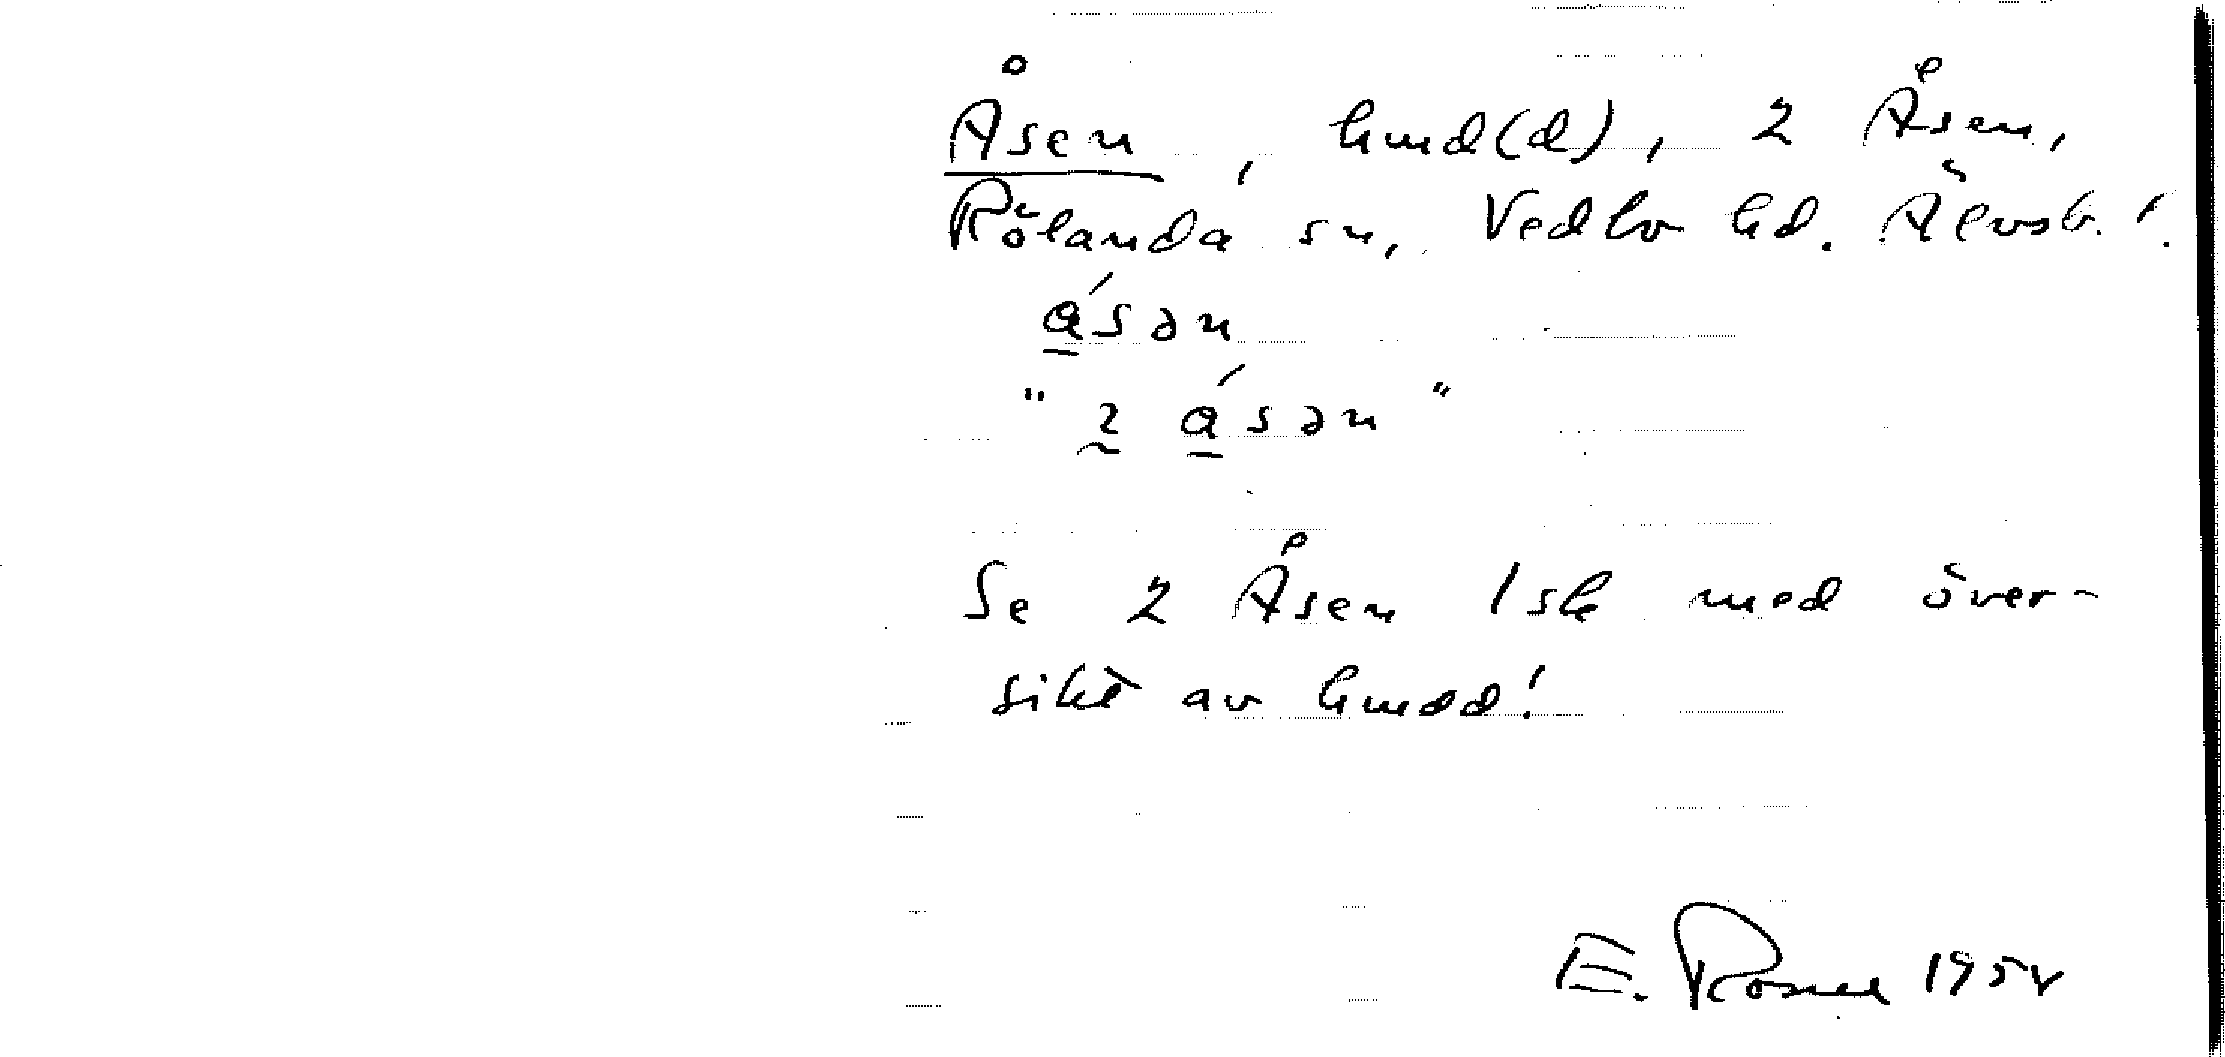 Åsen, hmd(d), 2 Åsen,
Rölanda sn, Vedbo hd. Älvsb. l.
á̱sən
" 2̰ á̱sən "
Se 2 Åsen 1 sk med över-
sikt av hmdd!
E. Rosell 195